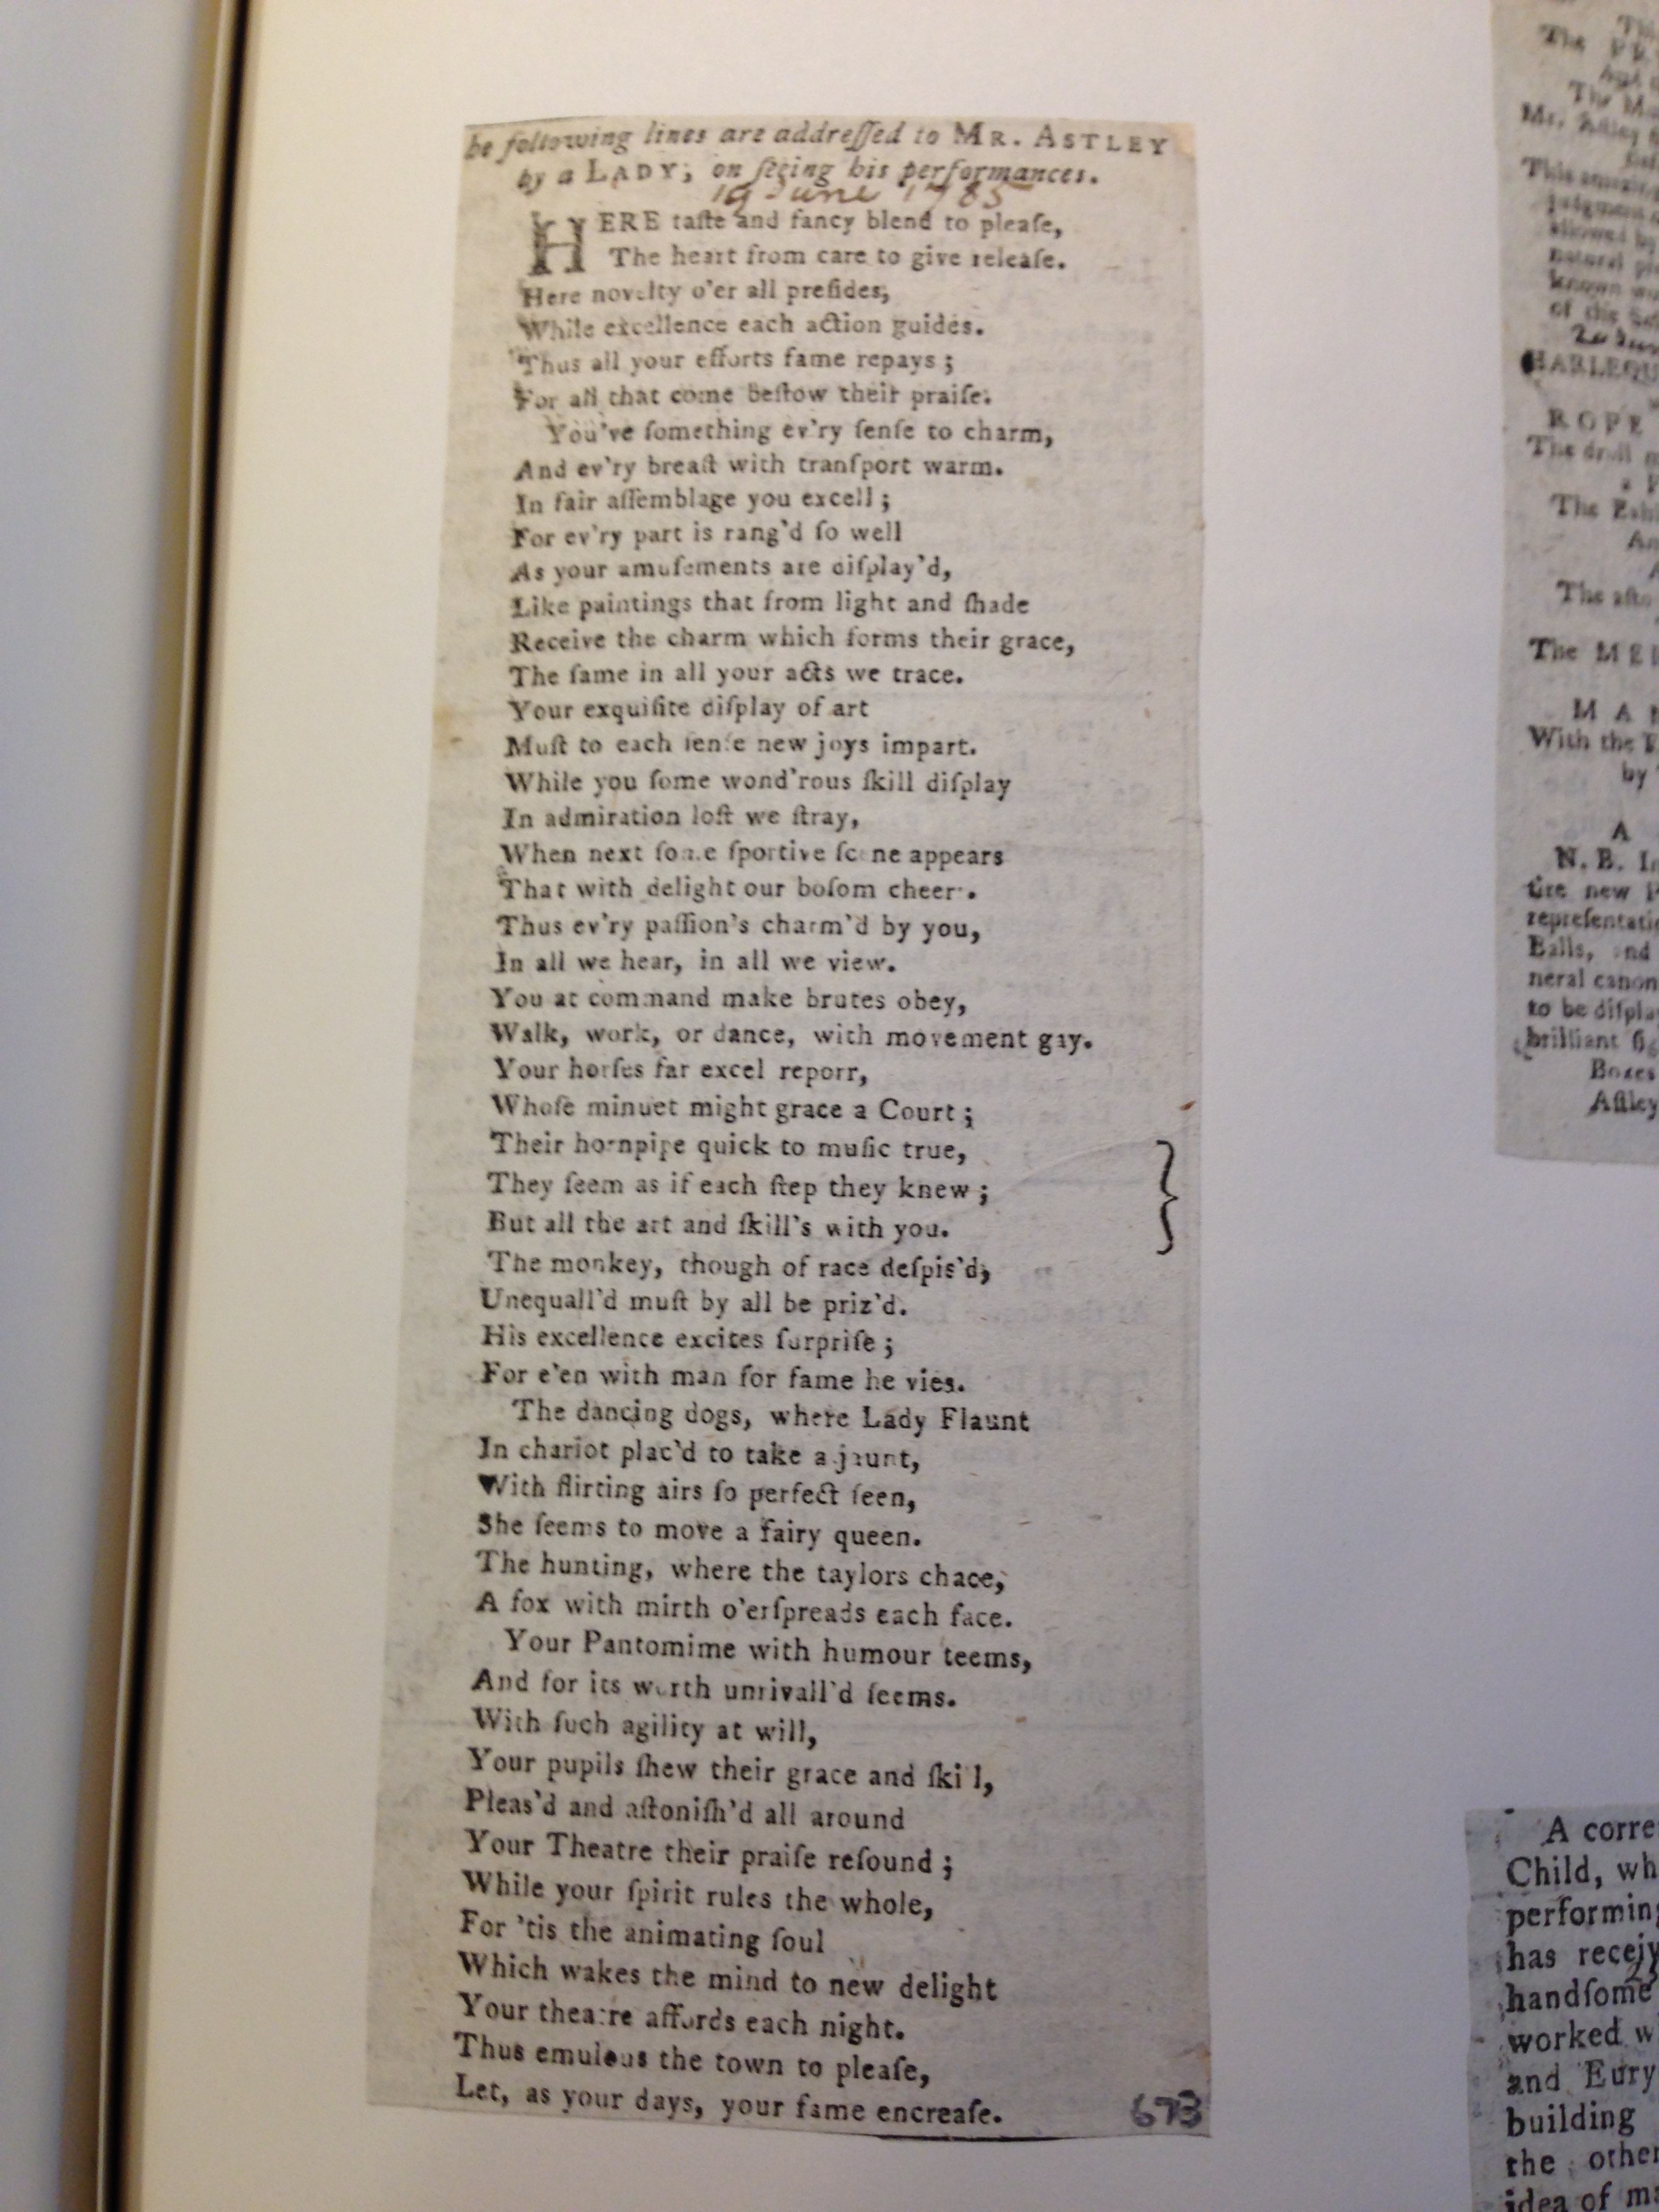 be following lines are addreſſed to MR. ASTLEY
by a LADY, on ſeeing his performances.
19 June 1785
HERE taſte and fancy blend to pleaſe,
The heart from care to give releaſe.
Here novelty o'er all preſides,
While excellence each action guides.
Thus all your efforts fame repays ;
For all that come beſtow their praiſe.
You've ſomething ev'ry ſenſe to charm,
And ev'ry breaſt with tranſport warm.
In fair aſſemblage you excell ;
For ev'ry part is rang'd ſo well
As your amuſements are diſplay'd,
Like paintings that from light and ſhade
Receive the charm which forms their grace,
The ſame in all your acts we trace.
Your exquiſite diſplay of art
Muſt to each ſenſe new joys impart.
While you ſome wond'rous ſkill diſplay
In admiration loſt we ſtray,
When next ſome ſportive ſcene appears
That with delight our boſom cheers.
Thus ev'ry paſſion's charm'd by you,
In all we hear, in all we view.
You at command make brutes obey,
Walk, work, or dance, with movement gay.
Your horſes far excel reporr,
Whoſe minuet might grace a Court ;
Their hornpipe quick to muſic true,
They ſeem as if each ſtep they knew ;
But all the art and ſkill's with you.
The monkey, though of race deſpis'd,
Unequall'd muſt by all be priz'd.
His excellence excites ſurpriſe ;
For e'en with man for fame he vies.
The dancing dogs, where Lady Flaunt
In chariot plac'd to take a jaunt,
With flirting airs ſo perfect ſeen,
She ſeems to move a fairy queen.
The hunting, where the taylors chace,
A fox with mirth o'erſpreads each face.
Your Pantomime with humour teems,
And for its worth unrivall'd ſeems.
With ſuch agility at will,
Your pupils ſhew their grace and ſkill,
Pleas'd and aſtoniſh'd all around
Your Theatre their praiſe reſound ;
While your ſpirit rules the whole,
For 'tis the animating ſoul
Which wakes the mind to new delight
Your theatre affords each night.
Thus emulous the town to pleaſe,
Let, as your days, your fame encreaſe.
673
The
The M
Mr. Aſtley
HARLEQU
ROPE
The droll
The
The
The ME
MAN
With the
by
A
N. B. I
tire new
repreſentati
Balls, and
neral canon
to be diſpla
brilliant
Boxes
Aſtley
A corre
Child, wh
performing
has receiv
handſome
worked w
and Eury
building
the other
idea of m